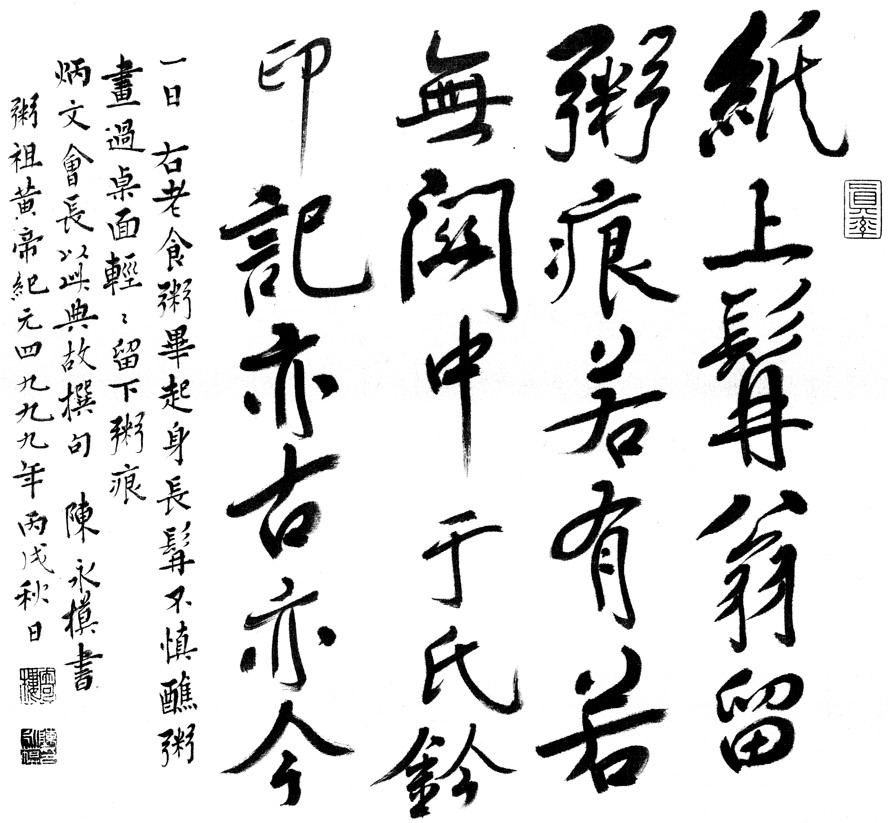 紙上髯翁留
粥痕若有若
無闕中于氏鈐
印記亦古亦今
一日右老食粥畢起身長髯不慎醮粥
畫過桌面輕輕留下粥痕
炳文會長以此典故撰句 陳永模書
粥祖黃帝紀元四九九九年丙戌秋日